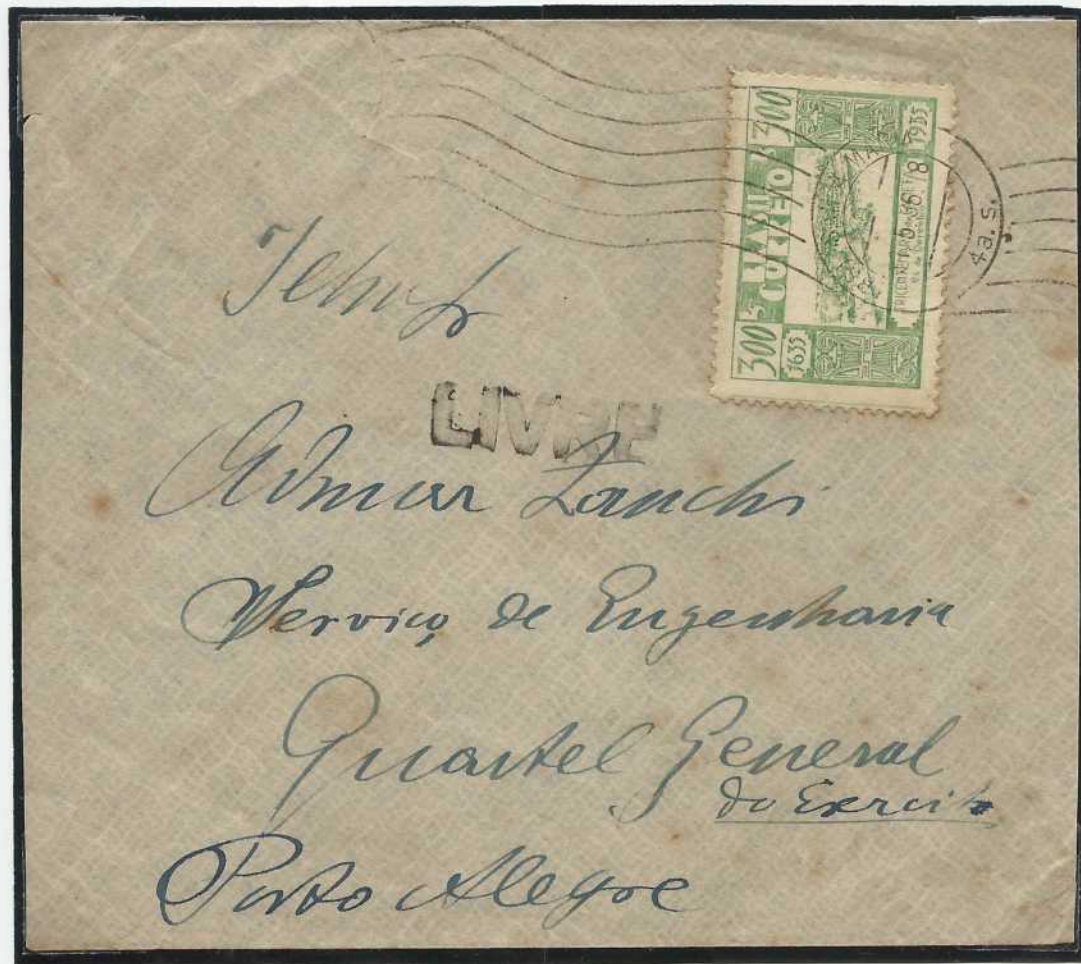 300 BRASIL 300
CORREIO
1635 1935
4a. S.
LIVRE
Admar Zanchi
Serviço de Engenharia
Quartel General
do Exercito
Porto Alegre